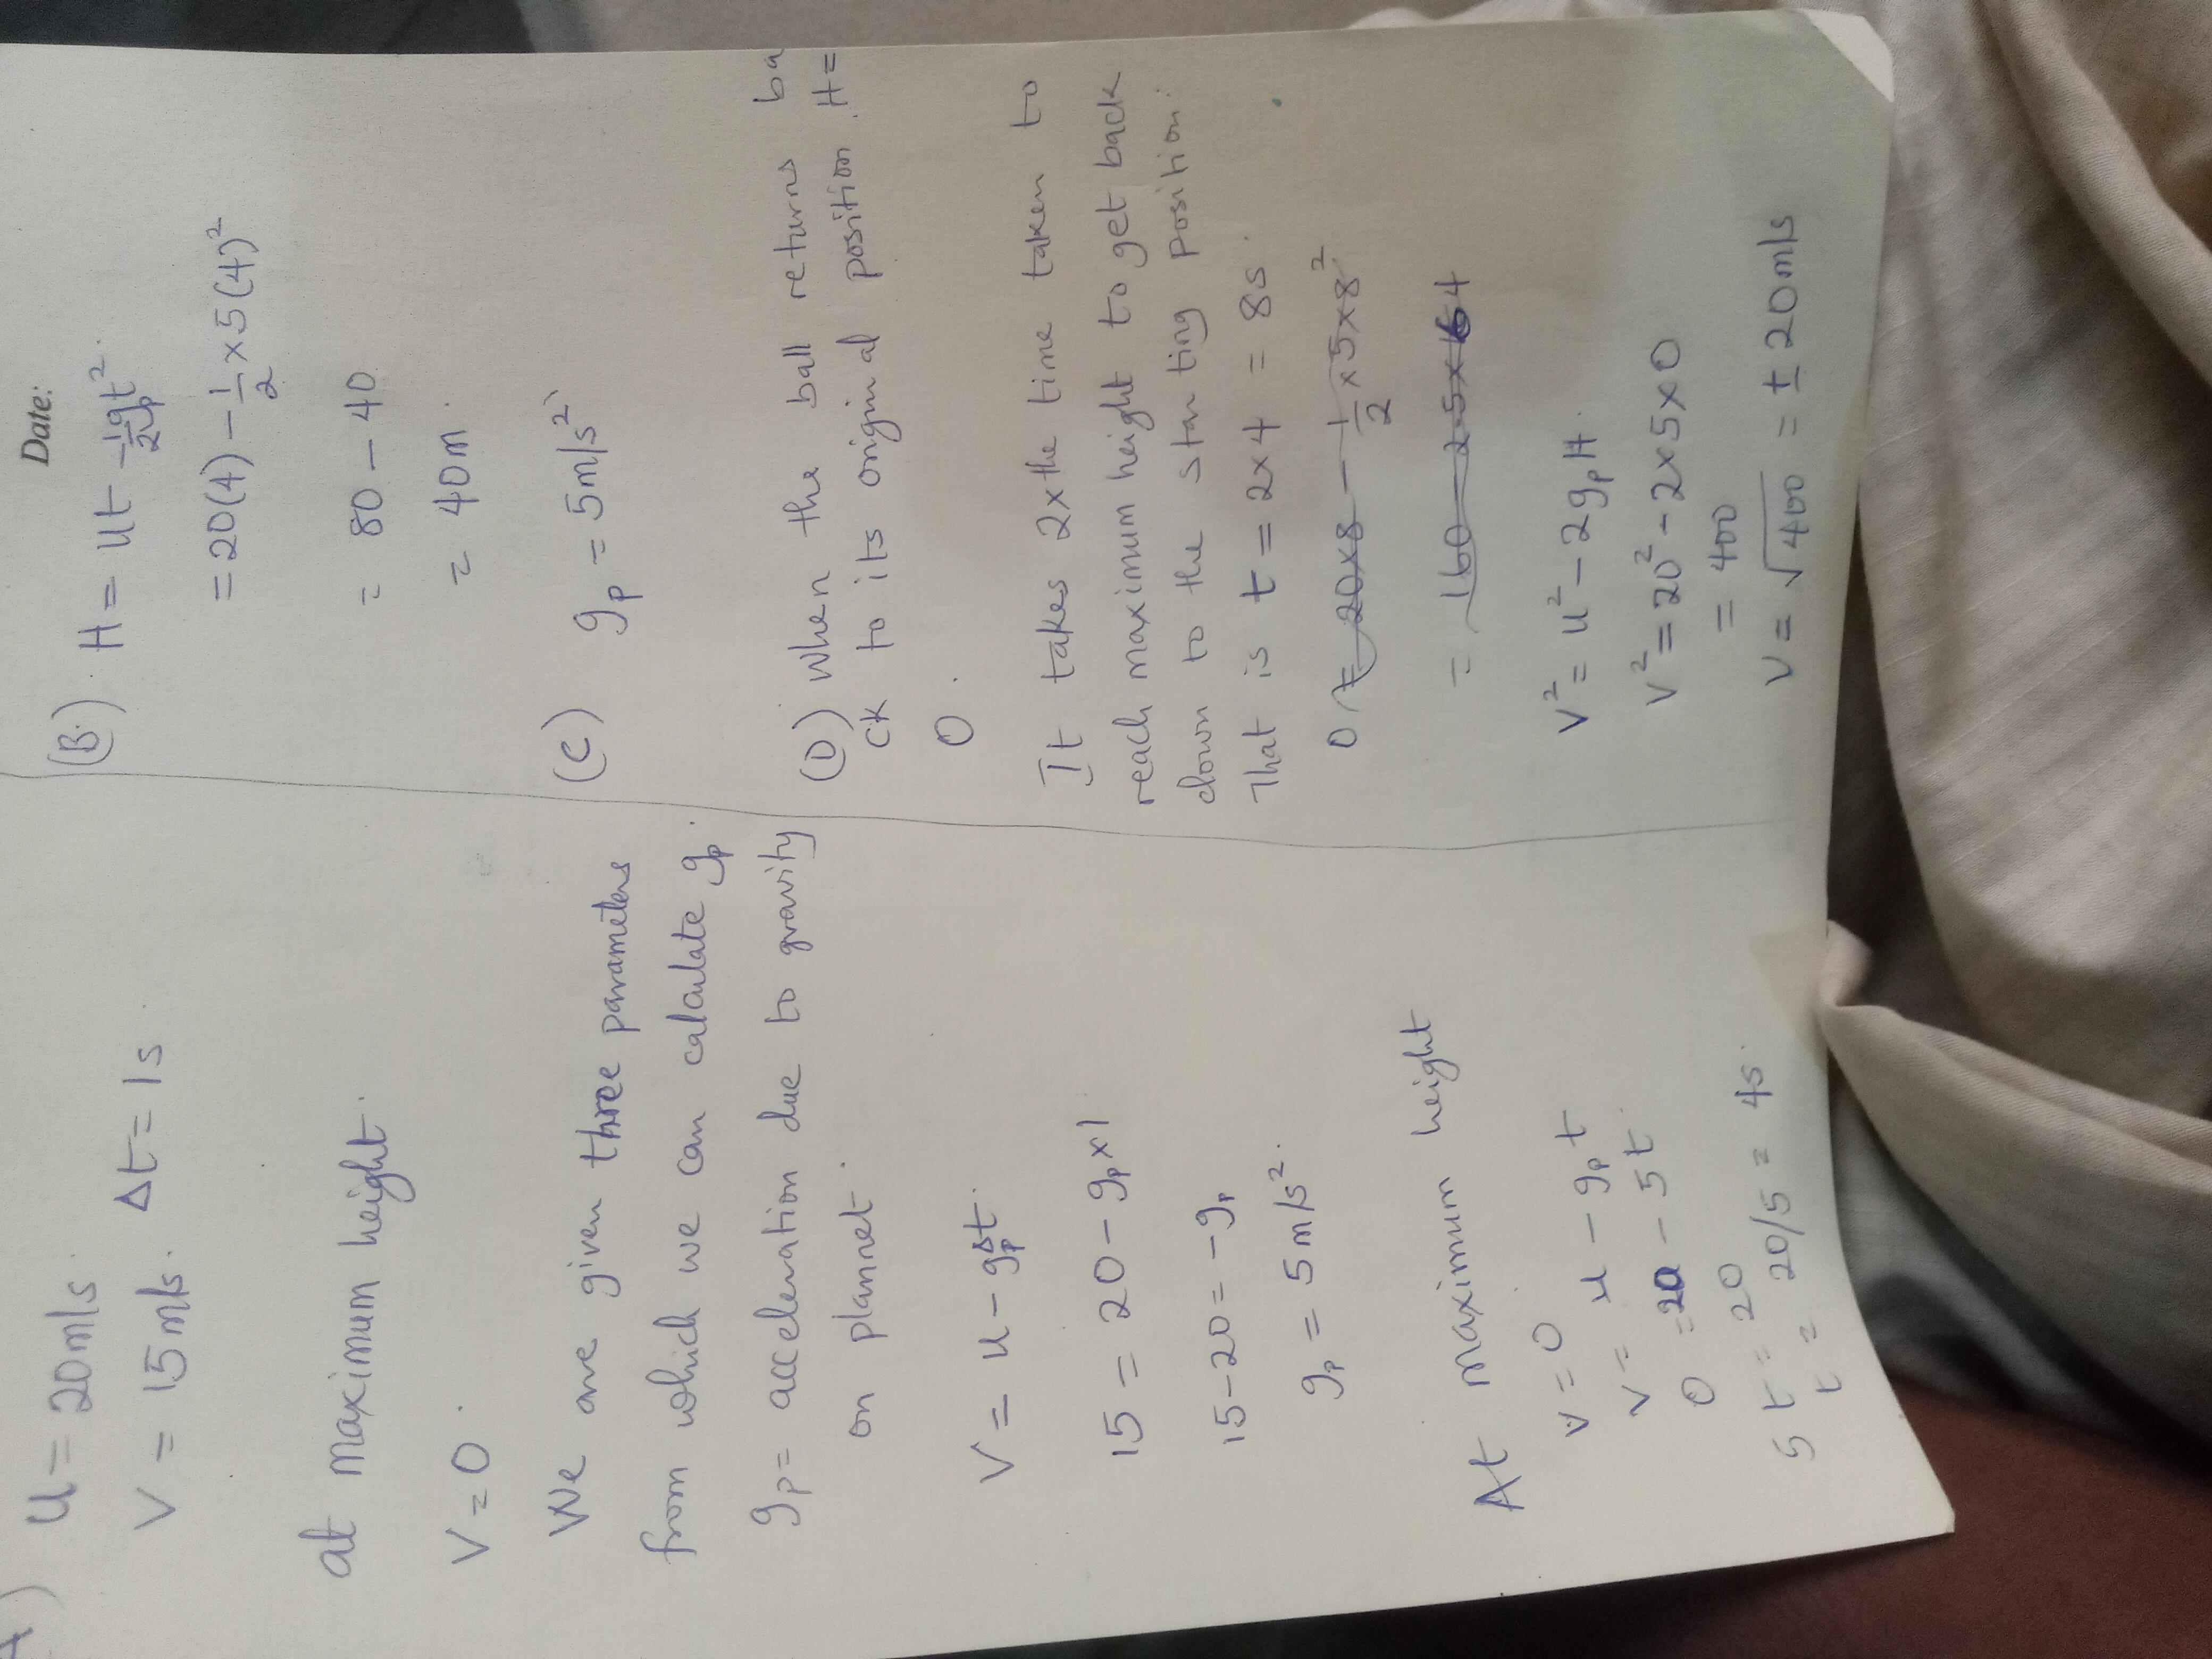 A)
u = 20m/s.
V = 15m/s. Δt = 1s.
at maximum height.
V = 0.
We are given three parameters
from which we can calculate gₚ.
gₚ = acceleration due to gravity
on plannet.
V = u - gₚΔt.
15 = 20 - gₚ×1
15-20 = -gₚ
gₚ = 5m/s².
At maximum height
V = 0
V = u - gₚt
0 = 20 - 5t.
5t = 20
t = 20/5 = 4s.
Date:
(B) H = ut - ½gₚt².
= 20(4) - ½×5(4)²
= 80 - 40
= 40m.
(C) gₚ = 5m/s²
(D) when the ball returns ba
ck to its original position H =
0.
It takes 2x the time taken to
reach maximum height to get back
down to the starting position.
That is t = 2×4 = 8s.
20×8 - ½×5×8²
= 160 - 2.5×64
V² = u² - 2gₚH.
V² = 20² - 2×5×0
= 400
V = √400 = ±20m/s